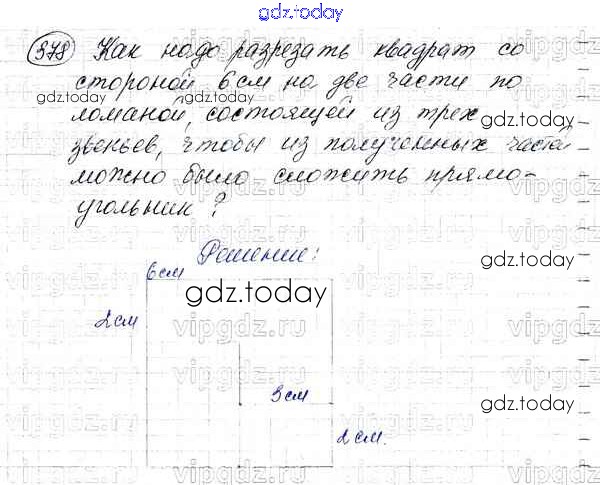 gdz.today
578 Как надо разрезать квадрат со
стороной 6 см на две части по
ломаной, состоящей из трех
звеньев, чтобы из полученных частей
можно было сложить прямо-
угольник?
Решение:
6 см
2 см
3 см
2 см.
gdz.today
gdz.today
gdz.today
gdz.today
gdz.today
vipgdz.ru
vipgdz.ru
vipgdz.ru
vipgdz.ru